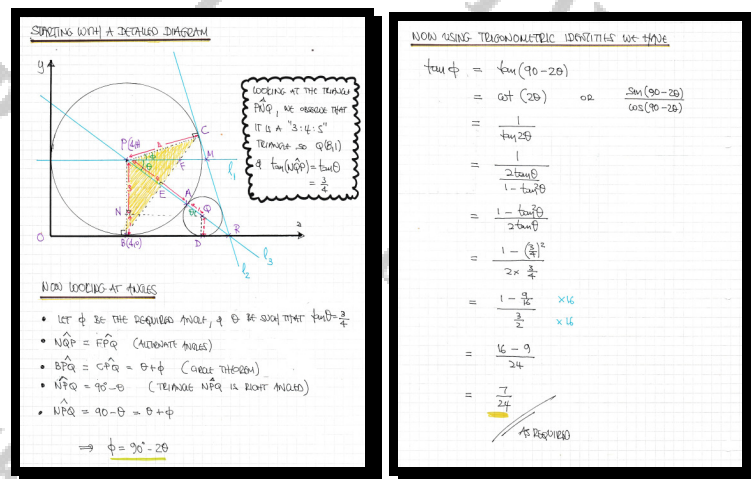 STARTING WITH A DETAILED DIAGRAM
y
LOOKING AT THE TRIANGLE
PNQ, WE OBSERVE THAT
IT IS A "3:4:5"
TRIANGLE SO Q(8,1)
& tan(NQ̂P) = tanθ
= 3/4
C
P(4,4)
4
φ
θ
F
M
l₁
E
A
N
Q
θ
O
B(4,0)
D
R
x
l₂
l₃
NOW LOOKING AT ANGLES
• LET φ BE THE REQUIRED ANGLE, & θ BE SUCH THAT tanθ = 3/4
• NQ̂P = FP̂Q (ALTERNATE ANGLES)
• BP̂Q = CP̂Q = θ+φ (CIRCLE THEOREM)
• NP̂Q = 90°-θ (TRIANGLE NP̂Q IS RIGHT ANGLED)
• NP̂Q = 90-θ = θ+φ
⟹ φ = 90°-2θ
NOW USING TRIGONOMETRIC IDENTITIES WE HAVE
tanφ = tan(90-2θ)
= cot(2θ) OR sin(90-2θ)/cos(90-2θ)
= 1/tan2θ
= 1/(2tanθ/(1-tan²θ))
= (1-tan²θ)/2tanθ
= (1-(3/4)²)/(2×3/4)
= (1-9/16)/(3/2) ×16 ×16
= (16-9)/24
= 7/24
AS REQUIRED